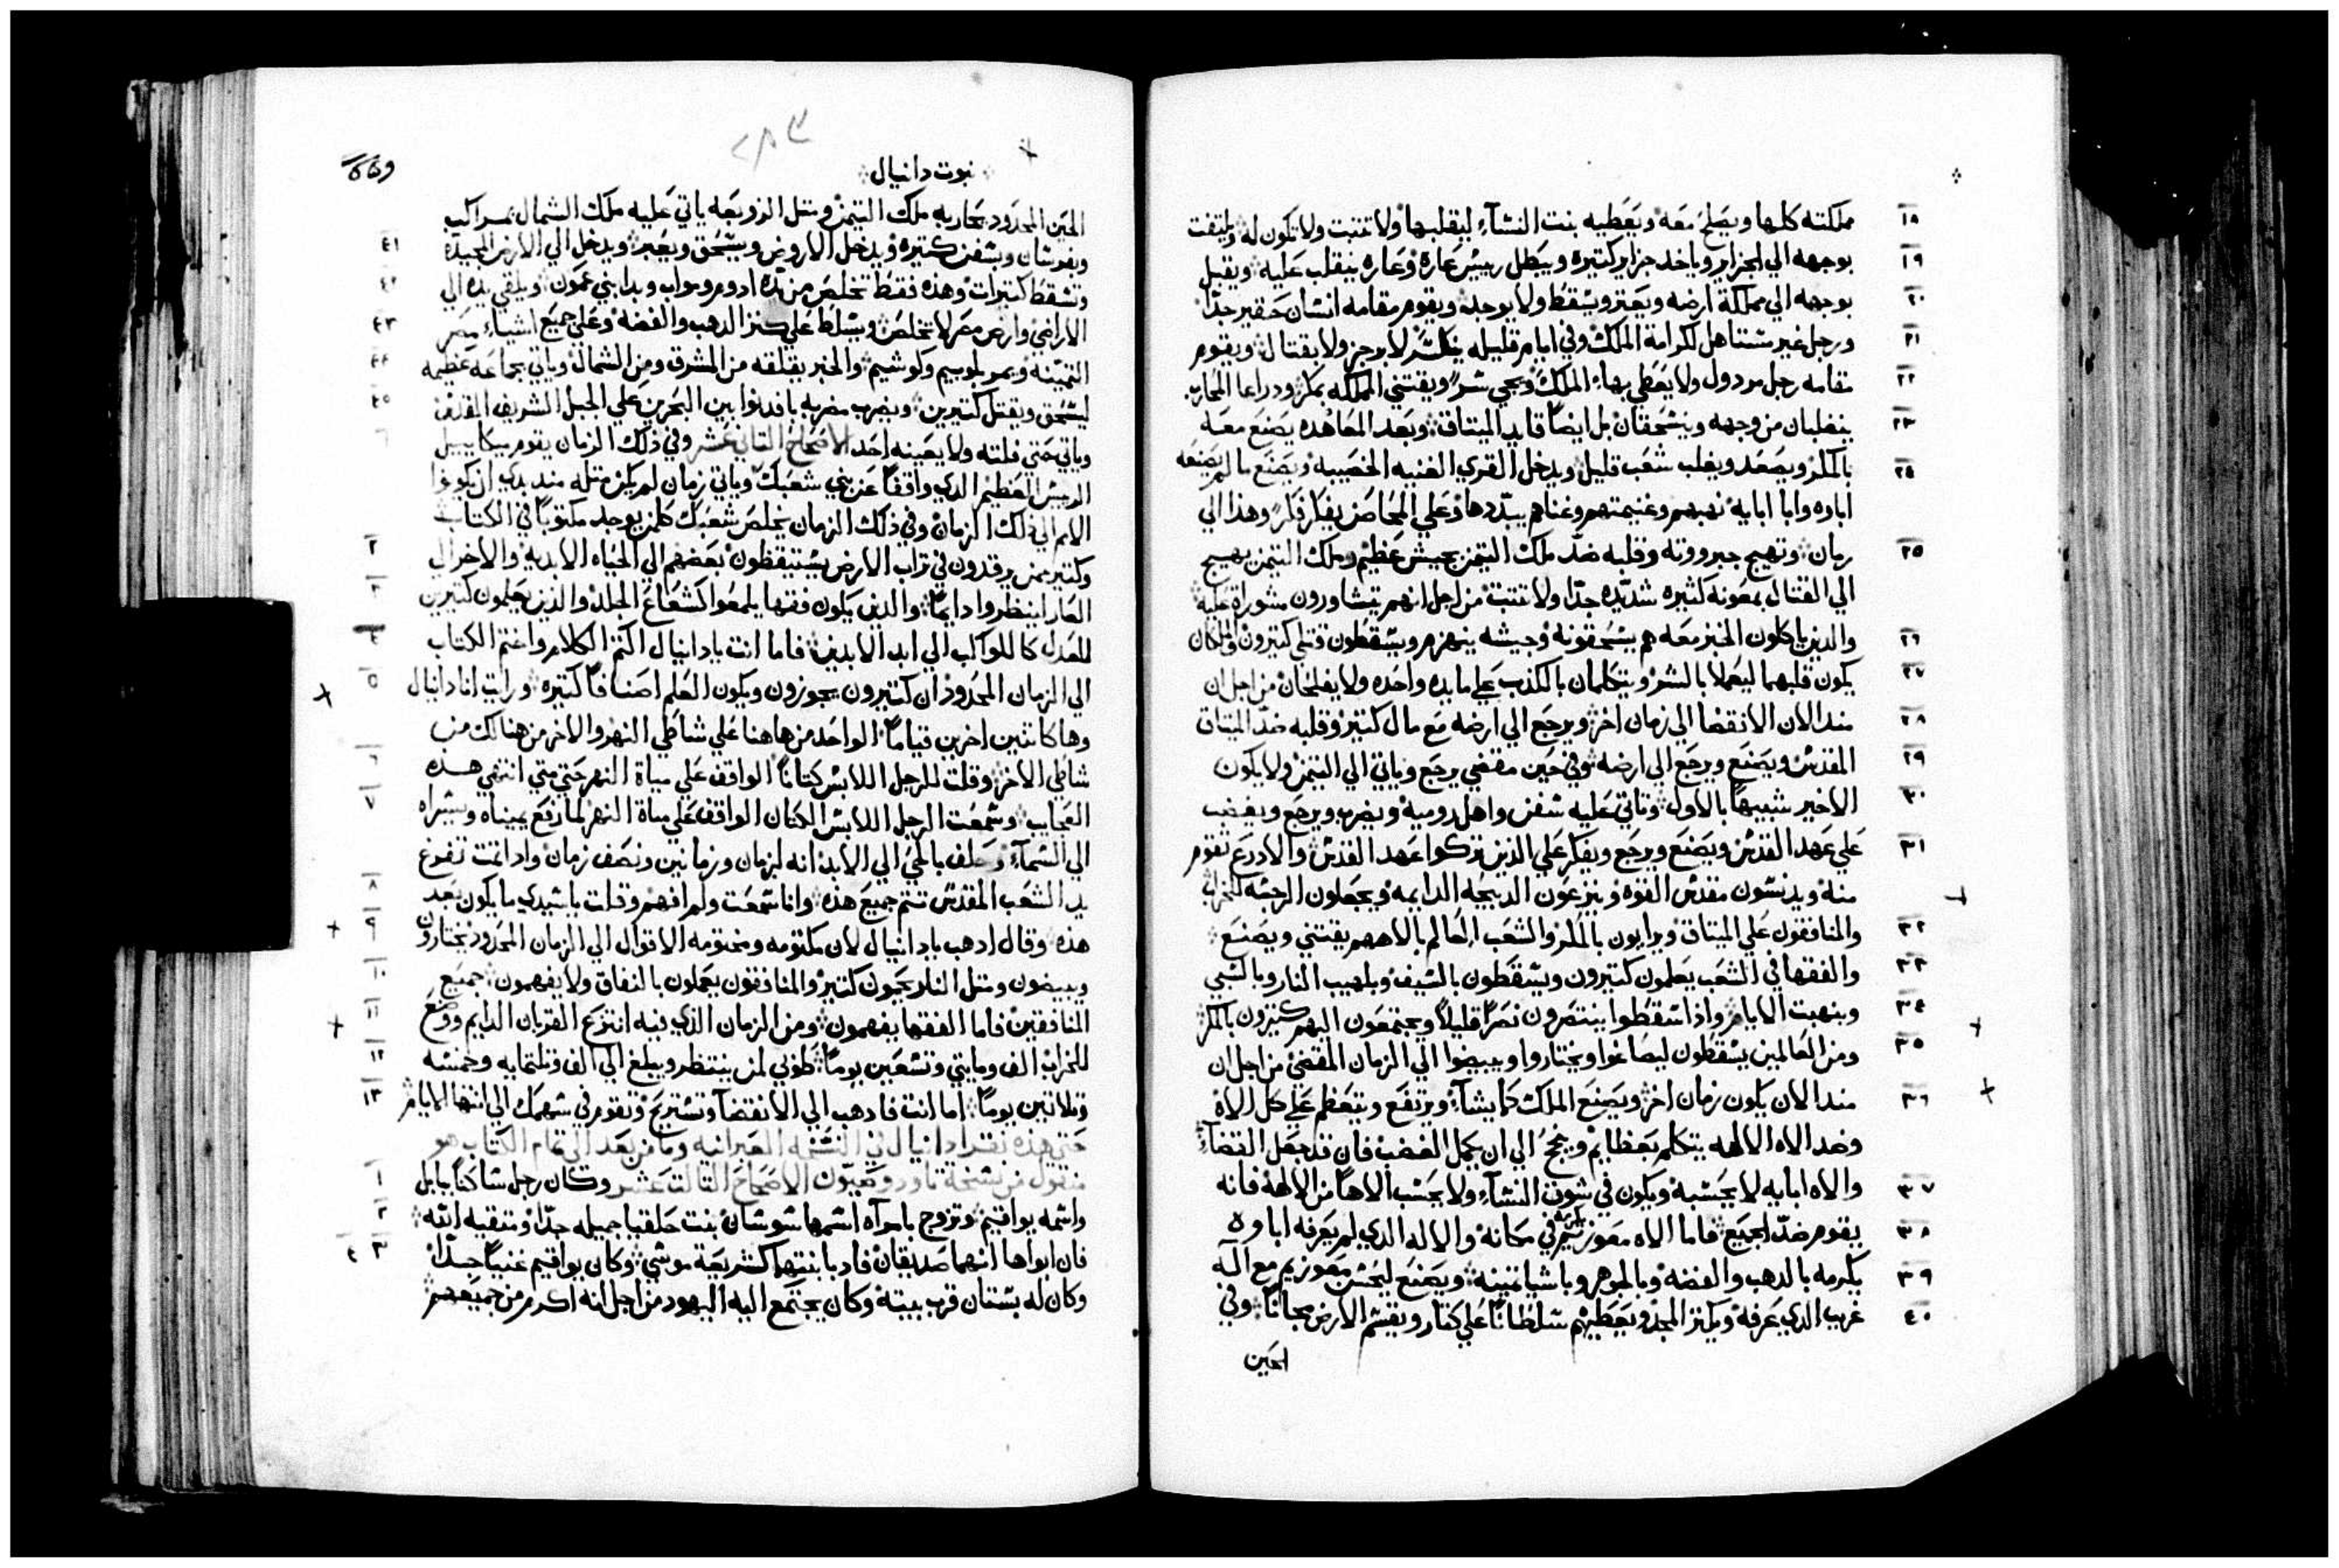 ١٨ مملكته كلها ويصلح معه ويعطيه بنت النسآء ليقلبها ولا تتبت ولا تكون له ويلتفت
١٩ بوجهه الي الجزاير وياخد جزاير كتيره ويبطل رييس عاره وعاره ينقلب عليه ويقبل
٢٠ بوجهه الي مملكة ارضه ويعتر ويسقط ولا يوجد ويقوم مقامه انسان حقير جدًا
٢١ ورجل غير مستاهل لكرامة الملك وفي ايام قليله ينكسر لا برجز ولا بقتال ويقوم
٢٢ مقامه رجل مردول ولا يعطي بهاء الملك ويجي سرًا ويقتني المملكه بمكر ودراعا المحارب
٢٣ ينغلبان من وجهه وينسحقان بل ايضًا قايد الميتاق وبعد المعاهده يصنع معه
٢٤ بالمكر ويصعد ويغلب بشعب قليل ويدخل القري الغنيه الخصيبه ويصنع ما لم يصنعه
اباوه وابا ابايه نهبهم وغنيمتهم وغناهم يبددها وعلي المحاصن يفكر فكرًا وهذا الي
٢٥ زمان وتهيج جبروته وقلبه ضد ملك التيمن بجيش عظيم وملك التيمن يهيج
الي القتال بمعونه كثيره شديده جدًا ولا تتبت من اجل انهم يتشاورون مشوراة عليه
٢٦ والدين ياكلون الخبز معه هم يسحقونه وجيشه ينهزم ويسقطون قتلي كتيرون والملكان
٢٧ يكون قلبهما ليعملا بالشر ويتكلمان بالكذب علي مايده واحده ولا يفلحان من اجل ان
٢٨ مند الان الانقضا الي زمان اخر ويرجع الي ارضه مع مال كتير وقلبه ضد الميتاق
٢٩ المقدس ويصنع ويرجع الي ارضه وفي حين مقضي يرجع وياتي الي التيمن ولا يكون
٣٠ الاخير شبيهًا بالاول وتاتي عليه سفن واهل روميه ويضرب ويرجع ويغضب
٣١ علي عهد القدس ويصنع ويرجع ويفكر علي الذين تركوا عهد القدس والادرع تقوم
منه ويدنسون مقدس القوه وينزعون الدبيحه الدايمه ويجعلون الرجسه للخراب
٣٢ والمنافقون علي الميتاق ويرايون بالمكر والشعب العالم بالاههم يقتني ويصنع
٣٣ والفقها في الشعب يعلمون كتيرون ويسقطون بالسيف وبلهيب النار وبالسبي
٣٤ وبنهبت الايام واذا سقطوا ينتصرون نصرًا قليلاً ويجتمعون اليهم كتيرون بالمكر
٣٥ ومن العالمين يسقطون ليصاغوا ويختاروا ويبيضوا الي الزمان المقضي من اجل ان
٣٦ مند الان يكون زمان اخر ويصنع الملك كما يشآء ويرتفع ويتعظم علي كل الاه
وضد الاه الالهه يتكلم بعظايم وينجح الي ان يكمل الغضب فان قد جعل القضآء
٣٧ والاه ابايه لا يحسبه ويكون في شوق النسآء ولا يحسب الاهًا من الالهه فانه
٣٨ يقوم ضد الجميع فاما الاه معوزيم يكرمه في مكانه والاله الدي لم يعرفه اباوه
٣٩ يكرمه بالدهب والفضه وبالجوهر وباشيا تمينه ويصنع ليحصن معوزيم مع اله
٤٠ غريب الدي عرفه ويكتر المجد ويعطيهم سلطانًا علي كتار ويقسم الارض مجانًا وفي
الحين
نبوت دانيال
الحين المحدود يحاربه ملك التيمن ومتل الزوبعه ياتي عليه ملك الشمال بمراكب
٤١ وبفرسان وبسفن كتيره ويدخل الاروض ويسحق ويعبر ويدخل الي الارض المجيده
٤٢ وتسقط كتيرات وهذه فقط تخلص من يده ادوم ومواب وبدا بني عمون ويلقي يده الي
٤٣ الاراضي وارض مصر لا تخلص ويسلط علي كنز الدهب والفضه وعلي جميع اشياء مصر
٤٤ التمينه ويمر بلوبيم وكوشيم والخبر يقلقه من المشرق ومن الشمال وياتي بجماعه عظيمه
٤٥ ليسحق ويقتل كتيرين ويضرب مضربه بافدنوا بين البحرين علي الجبل الشريف المقدس
وياتي حتي قلته ولا يعينه احد الاصحاح التاني عشر وفي ذلك الزمان يقوم ميكاييل
الرييس العظيم الدي واقفًا عن بني شعبك وياتي زمان لم يكن متله مند بدي ان يكونوا
الامم الي ذلك الزمان وفي ذلك الزمان يخلص شعبك كلمن يوجد مكتوبًا في الكتاب
٢ وكتير ممن يرقدون في تراب الارض يستيقظون بعضهم الي الحياه الابديه والاخر الي
٣ العار لينظروا دايمًا والدين يكون فقها يلمعوا كشعاع الجلد والذين يعلمون كتيرين
٤ للعدل كالكواكب الي ابد الابدين فاما انت يا دانيال اكتم الكلام واختم الكتاب
٥ الي الزمان المحدود ان كتيرون يجوزون ويكون العلم اصنافًا كتيره ورايت انا دانيال
وها كاتنين اخرين قيامًا الواحد من هاهنا علي شاطي النهر والاخر من هنالك من
٦ شاطي الاخر وقلت للرجل اللابس كتانًا الواقف علي مياة النهر حتي متي انتهي هذه
٧ العجايب وسمعت الرجل اللابس الكتان الواقف علي مياة النهر لما رفع يمينه ويسراه
الي السمآء وحلف بالحي الي الابد انه لزمان وزمانين ونصف زمان واذا تمت تفرغ
٨ يد الشعب المقدس تتم جميع هذه وانا سمعت ولم افهم وقلت يا سيدي ما يكون بعد
٩ هذه وقال ادهب يا دانيال لان مكتومه ومختومه الاقوال الي الزمان المحدود يختارون
١٠ ويبيضون ومتل النار يمحون كتير والمنافقون يعملون بالنفاق ولا يفهمون جميع
١١ المنافقين فاما الفقها يفهمون ومن الزمان الذي فيه انتزع القربان الدايم ووضع
١٢ للخراب الف ومايتي وتسعين يومًا طوبي لمن ينتظر ويبلغ الي الف وتلتمايه وخمسه
١٣ وتلاتين يومًا اما انت فادهب الي الانقضآ وتستريح وتقوم في سهمك الي انتها الايام
حتي هذه نقرا دانيال في النسخه العبرانيه وما من بعد الي تمام الكتاب هو
١ منقول من نسخة تاودوصيون الاصحاح التالت عشر وكان رجل ساكنًا بابل
٢ واسمه يواقيم وتزوج بامرآه اسمها سوسان بنت حلقيا جميله جدًا ومتقيه الله
٣ ٤ فان ابواها انهما صديقان فادبا بنتهما كشريعة موسي وكان يواقيم غنيًا جدًا
وكان له بستان قرب بيته وكان يجتمع اليه اليهود من اجل انه اكرم من جميعهم